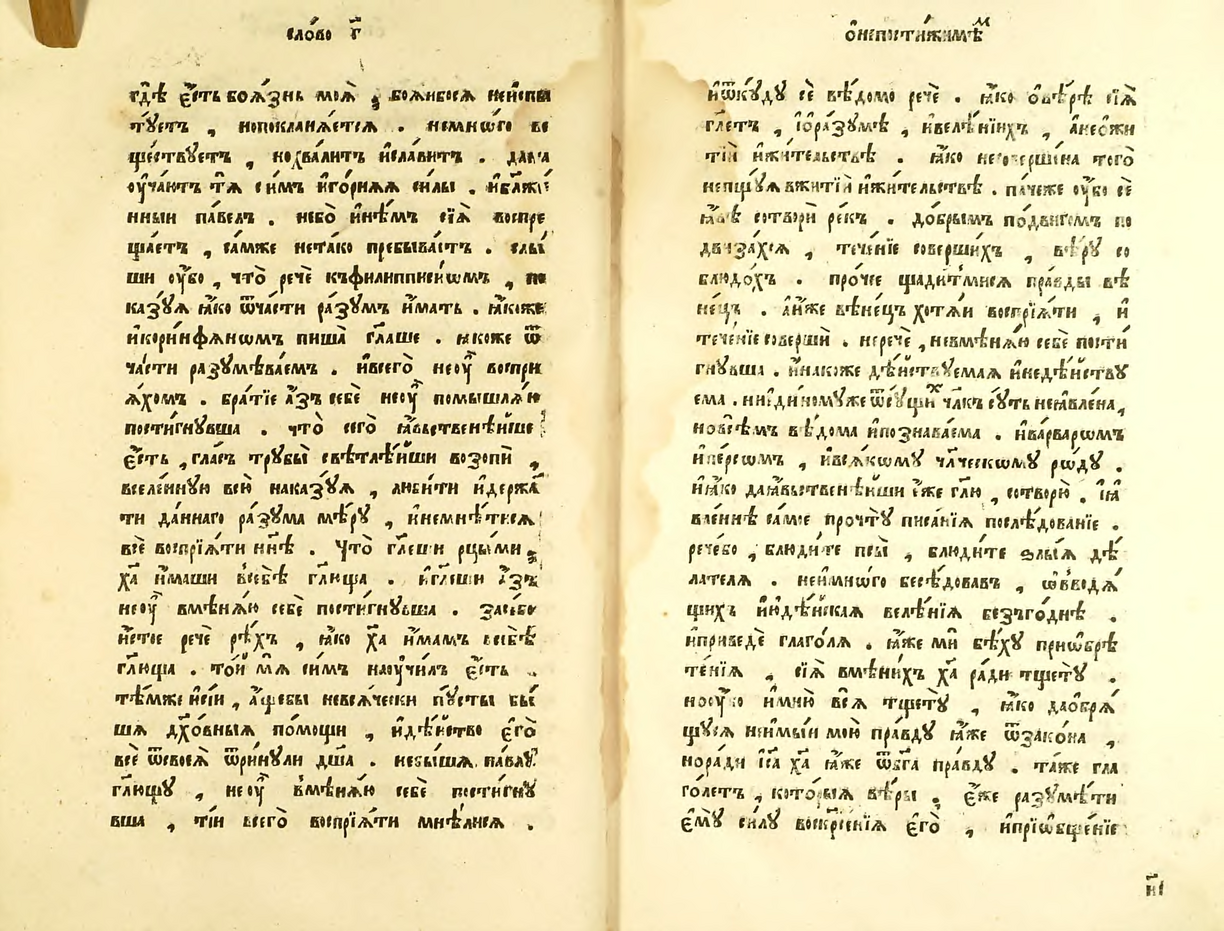 сло́во г҃
гдѣ̀ є҆́сть боѧ́знь моѧ̀ ; божибосѧ неиспы
тꙋетъ , нопокланѧ́етсѧ . немнѡ́го ве
ще́ствꙋетъ , нохва́литъ исла́витъ . да
ѹ҆ча́итъ тѧ си́мъ иго́рнѧѧ си́лы . ибл҃же́
нныи па́велъ . не́бо и҆нѣ́мъ сїѧ̀ воспре
ща́етъ , са́мже нета́ко пребыва́етъ . слы́
ши ѹ҆́бо , что̀ речѐ къфилипписїѡмъ , по
казꙋѧ ꙗ҆́ко ѿча́сти ра́зꙋмъ и҆́мать . ꙗ҆́коже
икори́нфѧнѡмъ пиша̀ гл҃аше . ꙗкоже ѿ
ча́сти разꙋмѣ́ваемъ . ивсего̀ неѹ҆̀ воспри
ѧ́хомъ . бра́тїе а҆́зъ себѐ неѹ҆̀ помышлѧ́ю
пости́гнꙋвша . что̀ сего̀ ꙗ҆́вьственѣ́ише
є҆́сть , гла́съ трꙋбы̀ свѣтлѣ́иши возопѝ ,
вселе́ннꙋю всю̀ наказꙋѧ , люби́ти идержа́
ти да́ннаго ра́зꙋма мѣ́рꙋ , инемнѣ́тисѧ
всѐ воспрїѧ́ти нн҃ѣ . Что̀ гл҃еши рцы́ми ;
хаⷭ҇ и҆́маши в̾себѣ̀ гл҃юща . игл҃еши а҆́зъ
неѹ҆̀ вмѣнѧ́ю себѐ пости́гнꙋвша . засебо
и҆́стое речѐ рѣ́хъ , ꙗ҆́ко ха҃ и҆́мамъ всебѣ̀
гл҃юща . то́й мѧ̀ си́мъ наѹчи́лъ є҆́сть .
тѣ́мже исїи , а҆́щебы невсѧ́чески пꙋсты бы́
шѧ дх҃о́вныѧ по́мощи , идѣ́йство є҆го̀
всѐ ѿсвоеѧ̀ ѿри́нꙋли дш҃а . небы́шѧ па́влꙋ
гл҃ющꙋ , неѹ҆̀ вмѣнѧ́ю себѐ пости́гнꙋ
вша , тїи всего̀ воспрїѧ́ти мнѣ́лисѧ .
ѻ҆непостижи́мѣⷨ
иѿкꙋ́дꙋ сѐ вѣ́домо речѐ . ꙗ҆́ко ѻ҆вѣ́рѣ сїѧ̀
гл҃етъ , їѻра́зꙋмѣ , ивелѣ́нїихъ , анеѻжи
тїи ижи́тельствѣ . ꙗ҆́ко несоверше́на того̀
непщꙋѧ вжитїи ижи́тельствѣ . па́чеже ѹ҆́бо сѐ
ꙗ҆́вѣ сотворѝ ре́къ . до́брымъ по́двигомъ по
двиза́хсѧ , тече́нїе соверши́хъ , вѣ́рꙋ со
блюдо́хъ . про́чее щади́тмисѧ пра́вды вѣ
не́цъ . а҆́иже вѣне́цъ хотѧ́и воспрїѧ́ти , и҆
тече́нїе совершѝ . неречѐ , невмѣнѧ́ю себѐ пости́
гнꙋвша . и҆на́коже дѣ́йствꙋемаѧ инедѣ́йствꙋ
ема . ниеди́номꙋже ѿсꙋ́щиⷯ чл҃къ сꙋть неꙗ҆влена ,
новсѣ́мъ вѣ́дома ипознава́ема . ива́рварѡмъ
ипе́рсѡмъ , ивсѧ́комꙋ чл҃ческомꙋ ро́дꙋ .
иꙗ҆́ко даꙗ҆́вьственѣ́йши є҆́же гл҃ю , сотворю̀ . їꙗ҆
вле́ннѣ са́мое прочтꙋ̀ писа́нїѧ послѣ́дованїе .
рече́бо , блюди́те псы̀ , блюди́те ѕлы́ѧ дѣ́
лателѧ . неимно́го бесѣ́довавъ , ѡ҆вводѧ́
щихъ июде́йскаѧ велѣ́нїѧ безъго́днѣ .
ипри́веде глаго́лѧ . ꙗ҆́же мѝ бѣ́хꙋ приѡбрѣ
те́нїѧ , сїѧ̀ вмѣни́хъ ха҃ ра́ди тщетꙋ̀ .
ноѹ҆́бо имню̀ всѧ̀ тщетꙋ̀ , ꙗ҆́ко даѻбрѧ́
щꙋсѧ неимы́и мою̀ пра́вдꙋ ꙗ҆́же ѿзако́на ,
нора́ди їс҃а ха҃ ꙗ҆́же ѿбг҃а пра́вдꙋ . та́же гла
го́летъ , кото́рыѧ вѣ́ры , є҆́же разꙋмѣ́ти
є҆мꙋ̀ си́лꙋ воскр҃се́нїѧ є҆го̀ , ипрїѡбще́нїе
н҃і